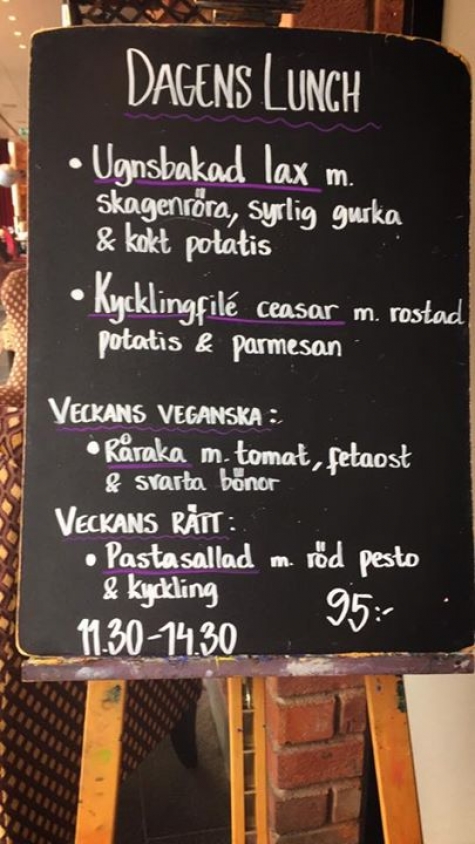 DAGENS LUNCH
• Ugnsbakad lax m.
skagenröra, syrlig gurka
& kokt potatis
• Kycklingfilé ceasar m. rostad
potatis & parmesan
VECKANS VEGANSKA:
• Råraka m. tomat, fetaost
& svarta bönor
VECKANS RÄTT:
• Pastasallad m. röd pesto
& kyckling
95:-
11.30-14.30